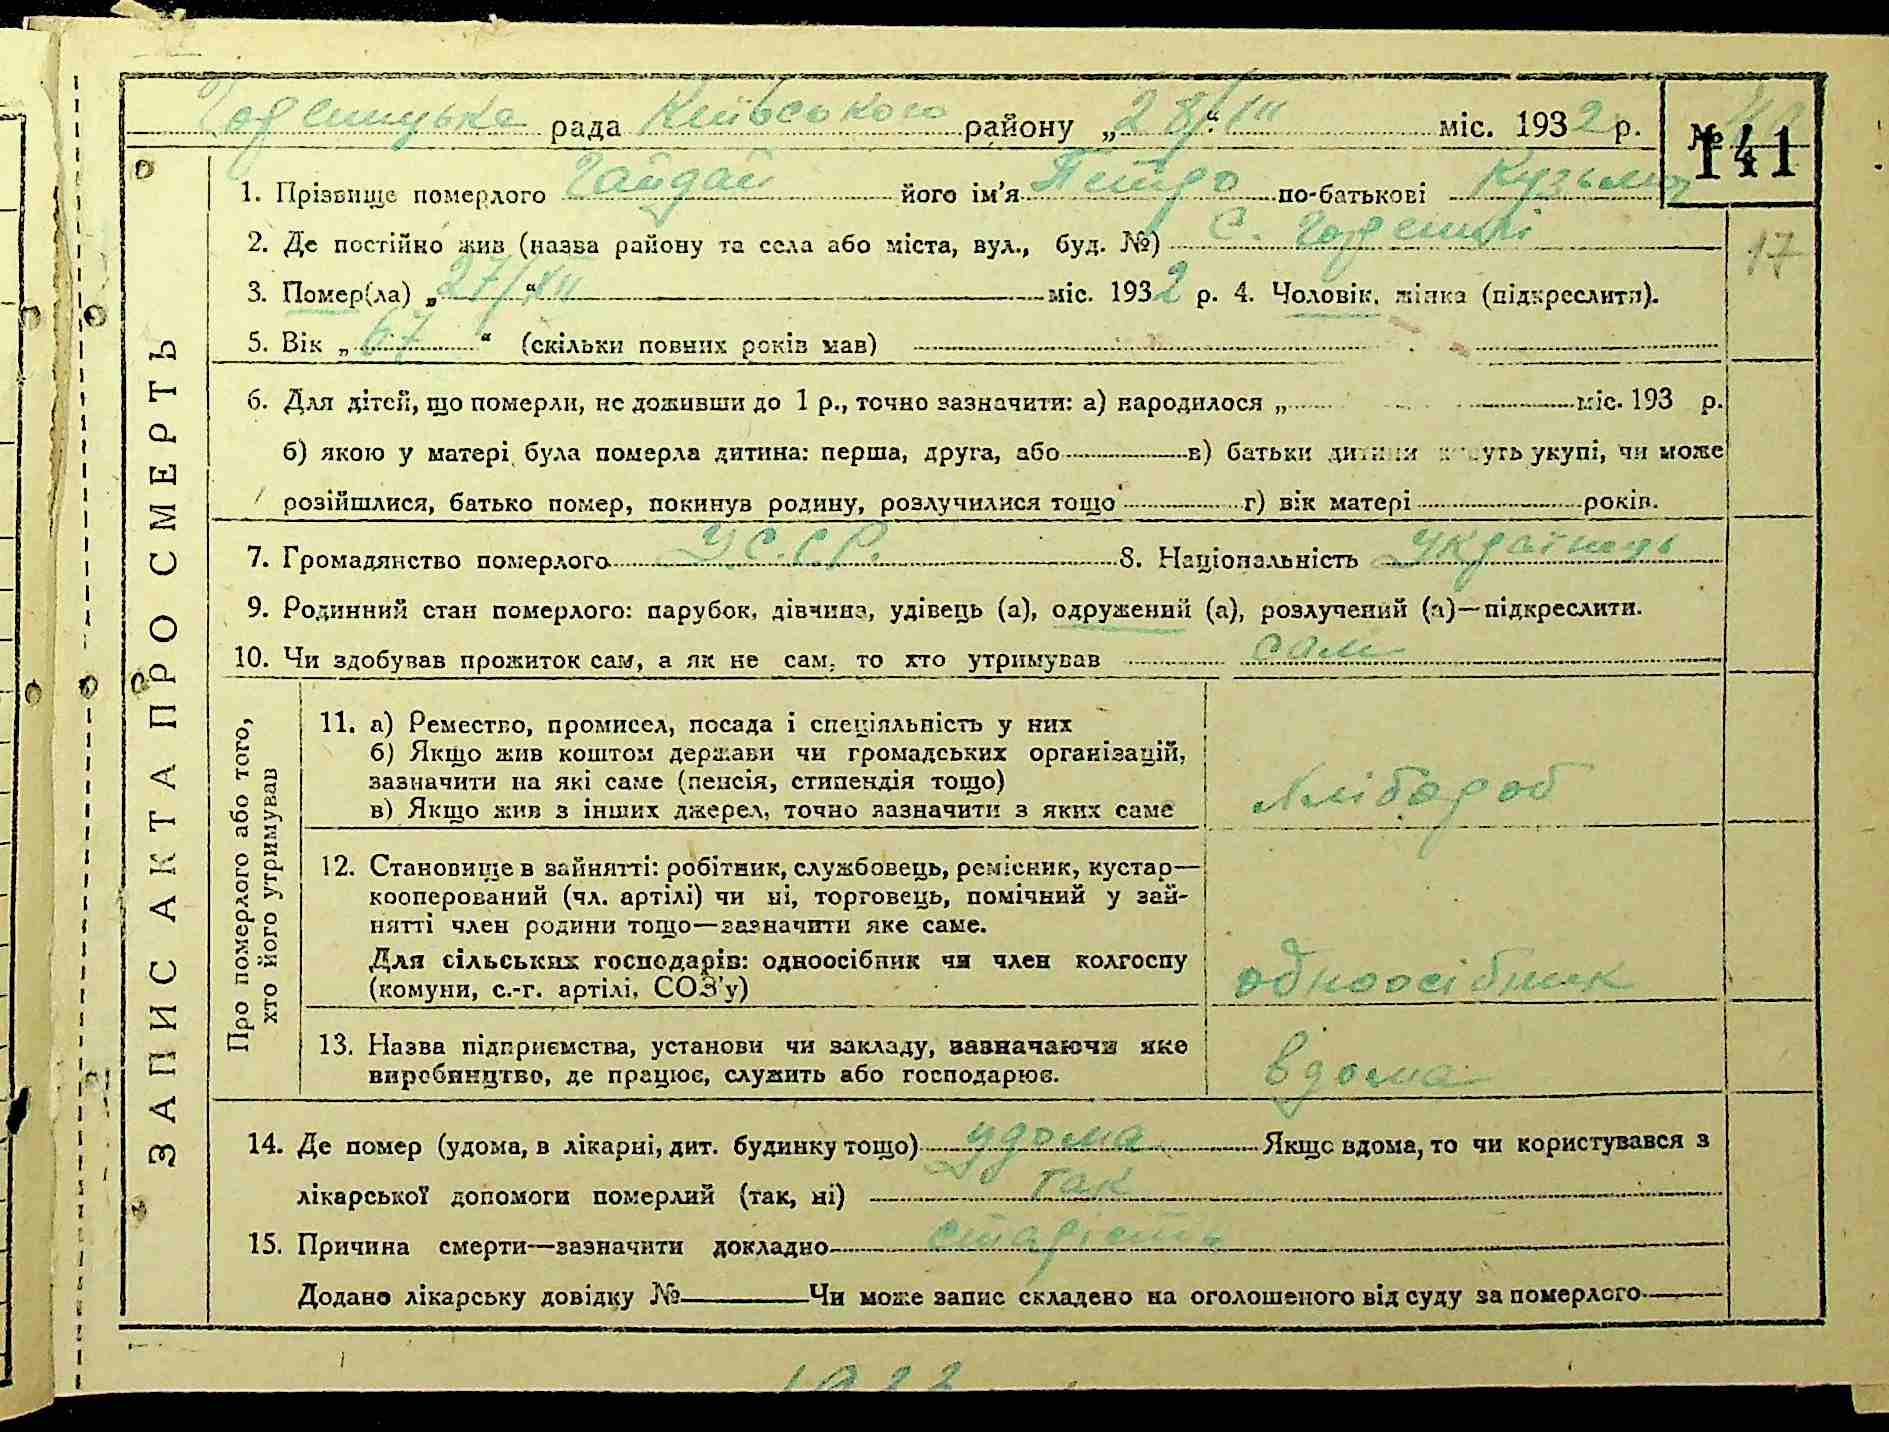 Гореницька рада Київського району „28/XII“ міс. 1932 р. № 141
1. Прізвище померлого Гайдай його ім'я Петро по-батькові Кузьмич
2. Де постійно жив (назва району та села або міста, вул., буд. №) С. Гореничі
17
3. Помер(ла) „27/XII“ міс. 1932 р. 4. Чоловік, жінка (підкреслити).
5. Вік „67“ (скільки повних років мав)
6. Для дітей, що померли, не доживши до 1 р., точно зазначити: а) народилося „ міс. 193 р.
б) якою у матері була померла дитина: перша, друга, або в) батьки дитини живуть укупі, чи може
розійшлися, батько помер, покинув родину, розлучилися тощо г) вік матері років.
7. Громадянство померлого У.С.С.Р. 8. Національність Українець
9. Родинний стан померлого: парубок, дівчина, удівець (а), одружений (а), розлучений (а)—підкреслити.
10. Чи здобував прожиток сам, а як не сам, то хто утримував сам
ЗАПИС АКТА ПРО СМЕРТЬ
Про померлого або того,
хто його утримував
11. а) Ремество, промисел, посада і спеціяльність у них
б) Якщо жив коштом держави чи громадських організацій,
зазначити на які саме (пенсія, стипендія тощо)
в) Якщо жив з інших джерел, точно зазначити з яких саме
Хлібороб
12. Становище в зайнятті: робітник, службовець, ремісник, кустар—
кооперований (чл. артілі) чи ні, торговець, помічний у зай-
нятті член родини тощо—зазначити яке саме.
Для сільських господарів: одноосібник чи член колгоспу
(комуни, с.-г. артілі, СОЗ'у)
одноосібник
13. Назва підприємства, установи чи закладу, зазначаючи яке
виробництво, де працює, служить або господарює.
вдома
14. Де помер (удома, в лікарні, дит. будинку тощо) удома Якщо вдома, то чи користувався з
лікарської допомоги померлий (так, ні) так
15. Причина смерти—зазначити докладно старість
Додано лікарську довідку № Чи може запис складено на оголошеного від суду за померлого